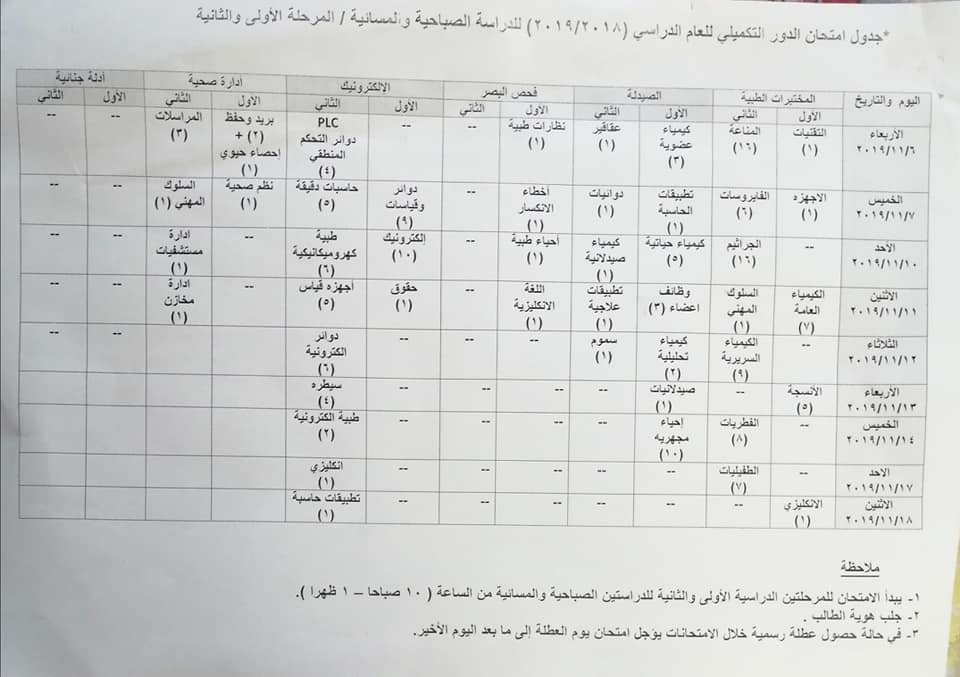 *جدول امتحان الدور التكميلي للعام الدراسي (٢٠١٩/٢٠١٨) للدراسة الصباحية والمسائية / المرحلة الأولى والثانية
اليوم والتاريخ المختبرات الطبية الصيدلة فحص البصر الالكترونيك ادارة صحية أدلة جنائية
الأول الثاني الأول الثاني الأول الثاني الأول الثاني الأول الثاني الأول الثاني
الأربعاء ٢٠١٩/١١/٦ التقنيات (١) المناعة (١٦) كيمياء عضوية (٣) عقاقير (١) نظارات طبية (١) -- -- PLC دوائر التحكم المنطقي (٤) بريد وحفظ (٢) + إحصاء حيوي (١) المراسلات (٣) -- --
الخميس ٢٠١٩/١١/٧ الاجهزه (١) الفايروسات (٦) تطبيقات الحاسبة (١) دوائيات (١) أخطاء الانكسار (١) -- دوائر وقياسات (٩) حاسبات دقيقة (٥) نظم صحية (١) السلوك المهني (١) -- --
الأحد ٢٠١٩/١١/١٠ -- الجراثيم (١٦) كيمياء حياتية (٥) كيمياء صيدلانية (١) أحياء طبية (١) -- إلكترونيك (١٠) طبية كهروميكانيكية (٦) -- ادارة مستشفيات (١) -- --
الأثنين ٢٠١٩/١١/١١ الكيمياء العامة (٧) السلوك المهني (١) وظائف اعضاء (٣) تطبيقات علاجية (١) اللغة الانكليزية (١) -- حقوق (١) أجهزه قياس (٥) -- ادارة مخازن (١) -- --
الثلاثاء ٢٠١٩/١١/١٢ -- الكيمياء السريرية (٩) كيمياء تحليلية (٢) سموم (١) -- -- -- دوائر الكترونية (٦) -- --
الأربعاء ٢٠١٩/١١/١٣ الأنسجة (٥) -- صيدلانيات (١) -- -- -- -- سيطره (٤)
الخميس ٢٠١٩/١١/١٤ -- الفطريات (٨) إحياء مجهريه (١٠) -- -- -- -- طبية الكترونية (٢)
الاحد ٢٠١٩/١١/١٧ -- الطفيليات (٧) -- -- -- -- -- انكليزي (١)
الأثنين ٢٠١٩/١١/١٨ الانكليزي (١) -- -- -- -- -- -- تطبيقات حاسبة (١)
ملاحظة
١- يبدأ الامتحان للمرحلتين الدراسية الأولى والثانية للدراستين الصباحية والمسائية من الساعة ( ١٠ صباحا – ١ ظهرا ).
٢- جلب هوية الطالب .
٣- في حالة حصول عطلة رسمية خلال الامتحانات يؤجل امتحان يوم العطلة إلى ما بعد اليوم الأخير.